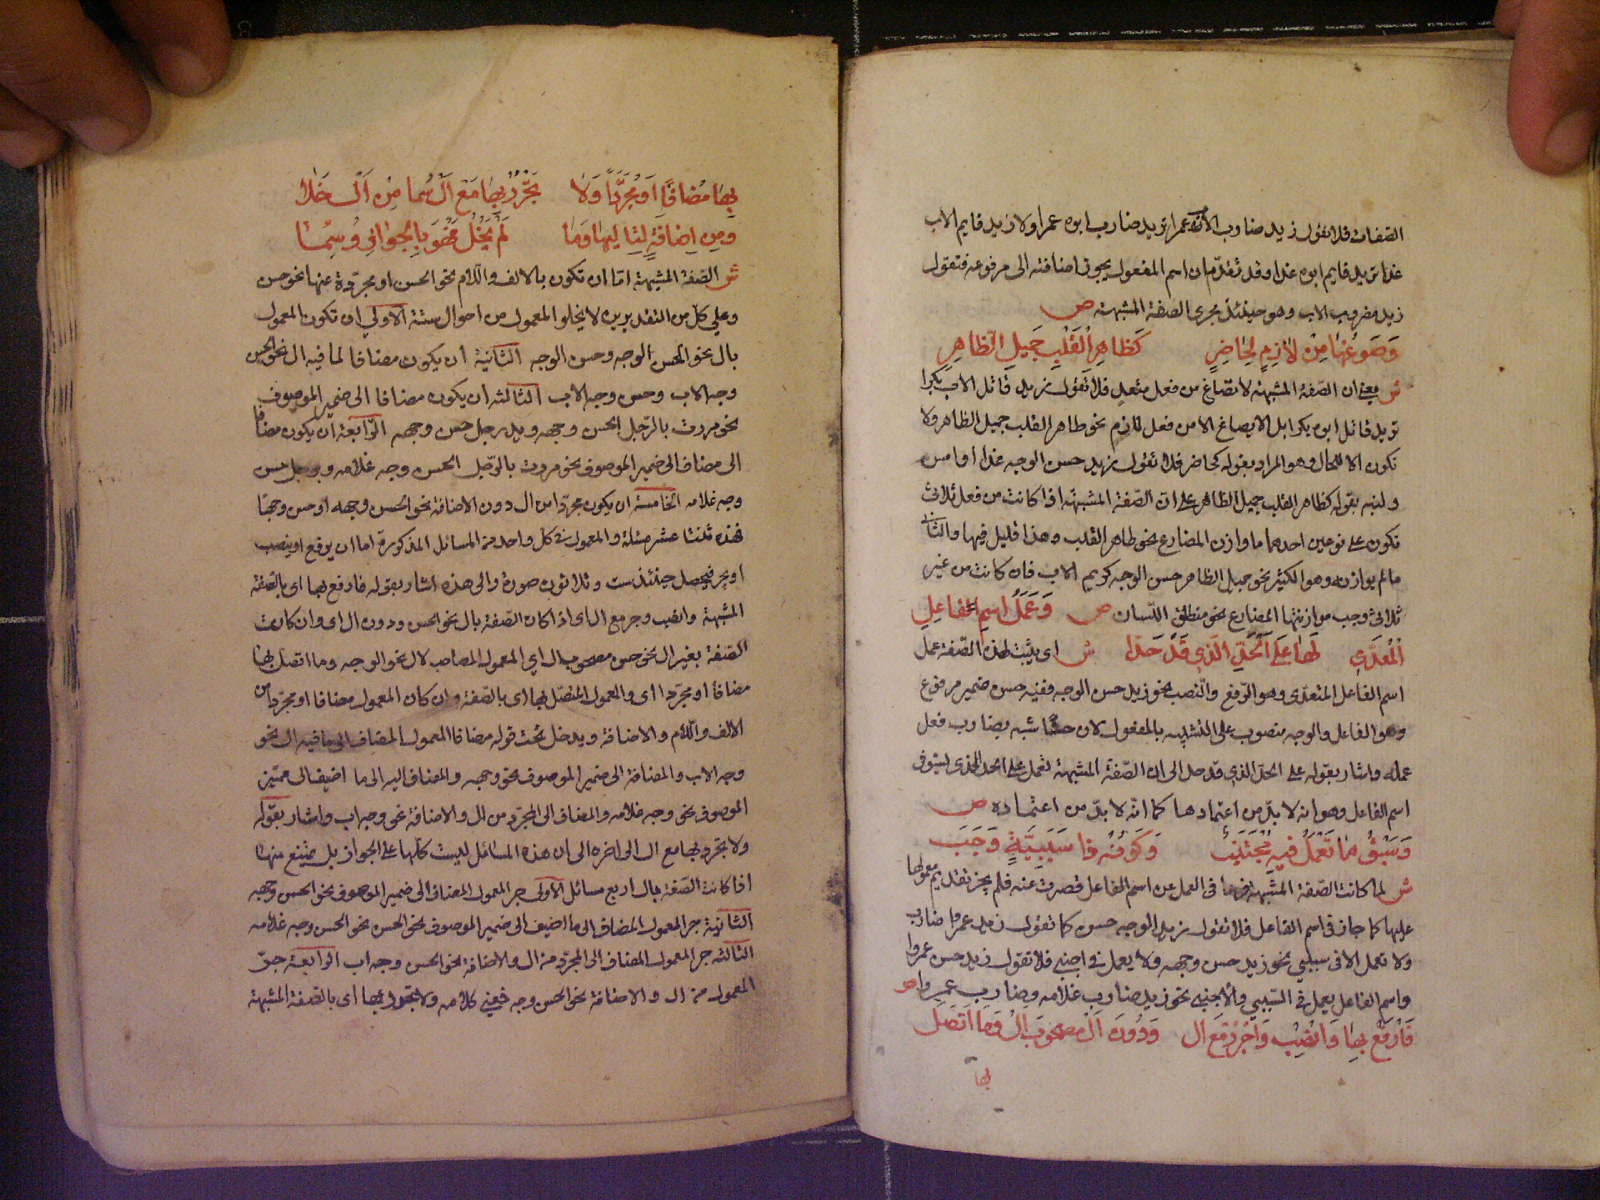 الصفات فلا تقول زيد ضارب الاب عمرا تريد ضارب ابوه عمرا ولا زيد قايم الاب
غدا تريد قايم ابوه غدا وقد تقدم ان اسم المفعول يجوز اضافته الى مرفوعه فتقول
زيد مضروب الاب وهو حينئذ يجرى الصفة المشبهة ص
وَصَوغُهَا مِنْ لَازِمٍ لِحَاضِرِ كَظَاهِرِ الْقَلْبِ جَمِيلِ الظَّاهِرِ
ش يعنى ان الصفة المشبهة لا تصاغ من فعل متعد فلا تقول زيد قاتل الاب بكرا
تريد قاتل ابوه بكرا بل لا يصاغ الا من فعل لازم نحو طاهر القلب جميل الظاهر ولا
تكون الا للحال وهو المراد بقوله لحاضر فلا تقول زيد حسن الوجه غدا او امس
ولنبه بقوله كظاهر القلب جميل الظاهر على ان الصفة المشبهة اذا كانت من فعل ثلاثى
تكون على نوعين احدهما ما وازن المضارع نحو طاهر القلب وهذا قليل فيها والثانى
ما لم يوازنه وهو الكثير نحو جميل الظاهر حسن الوجه كريم الاب فان كانت من غير
ثلاثى وجب موازنتها المضارع نحو منطلق اللسان ص وَعَمَلُ اسْمِ الفَاعِلِ
الْمُعَدَّى لَهَا عَلَى الْحَدِّ الَّذِي قَدْ حُدَّا ش اى يثبت لهذه الصفة عمل
اسم الفاعل المتعدى وهو الرفع والنصب نحو زيد حسن الوجه ففيه حسن ضمير مرفوع
وهو الفاعل والوجه منصوب على التشبيه بالمفعول لان حسنا شبه بضارب فعل
عمله واشار بقوله على الحد الذى قد حدا الى ان الصفة المشبهة تعمل على الحد الذى سبق فى
اسم الفاعل وهو انه لا بد من اعتمادها كما انه لا بد من اعتماده ص
وَسَبْقُ مَا تَعْمَلُ فِيهِ مُجْتَنَبْ وَكَوْنُهُ ذَا سَبَبِيَّةٍ وَجَبْ
ش لما كانت الصفة المشبهة فرعا فى العمل عن اسم الفاعل قصرت عنه فلم يجز تقديم معمولها
عليها كما جاز فى اسم الفاعل فلا تقول زيد الوجه حسن كما تقول زيد عمرا ضارب
ولا تعمل الا فى سببى نحو زيد حسن وجهه ولا يعمل فى اجنبى فلا تقول زيد حسن عمروا
واسم الفاعل يعمل فى السببى والاجنبى نحو زيد ضارب غلامه وضارب عمروا ص
فَارْفَعْ بِهَا وَانْصِبْ وَاجْرُرْ مَعَ ال وَدُونَ اَلْ مَصْحُوبَ اَلْ وَمَا اتَّصَلْ
بها
بِهَا مُضَافًا اَوْ مُجَرَّدًا وَلَا تَجْرُرْ بِهَا مَعَ اَلْ سُمًا مِنْ اَلْ خَلَا
وَمِنْ اِضَافَةٍ لِتَالِيهَا وَمَا لَمْ يَخْلُ فَهْوَ بِالْجَوَازِ وُسِمَا
ش الصفة المشبهة اما ان تكون بالالف واللام نحو الحسن او مجردة عنها نحو حسن
وعلى كل من التقديرين لا يخلو المعمول من احوال ستة الاولى ان تكون المعمول
بال نحو الحسن الوجه وحسن الوجه الثانية ان يكون مضافا لما فيه ال نحو الحسن
وجه الاب وحسن وجه الاب الثالثة ان يكون مضافا الى ضمير الموصوف
نحو مررت بالرجل الحسن وجهه وبرجل حسن وجهه الرابعة ان يكون مضافا
الى مضاف الى ضمير الموصوف نحو مررت بالرجل الحسن وجه غلامه وبرجل حسن
وجه غلامه الخامسة ان يكون مجردا من ال دون الاضافة نحو الحسن وجهه او حسن وجها
فهذه ثنتا عشر مسئلة والمعمول فى كل واحد من المسائل المذكورة اما ان يرفع او ينصب
او يجر فيحصل حينئذ ست وثلاثون صورة والى هذه اشار بقوله فارفع بها اى بالصفة
المشبهة وانصب وجر مع ال اى اذا كان الصفة بال نحو الحسن ودون ال اى وان كانت
الصفة بغير ال نحو حسن مصحوب ال اى المعمول المصاحب لال نحو الوجه وما اتصل بها
مضافا او مجردا اى والمعمول المتصل بها اى بالصفة وان كان المعمول مضافا او مجردا من
الالف واللام والاضافة ويدخل تحت قوله مضافا المعمول المضاف الى ما فيه ال نحو
وجه الاب والمضافة الى ضمير الموصوف نحو وجهه والمضاف اليه الى ما اضيف الى ضمير
الموصوف نحو وجه غلامه والمضاف الى المجرد من ال والاضافة نحو وجه اب واشار بقوله
ولا تجرر بها مع ال الى اخره الى ان هذه المسائل ليست كلها على الجواز بل يمتنع منها
اذا كانت الصفة بال اربع مسائل الاولى جر المعمول المضاف الى ضمير الموصوف نحو الحسن وجهه
الثانية جر المعمول المضاف الى ما اضيف الى ضمير الموصوف نحو الحسن نحو الحسن وجه غلامه
الثالثة جر المعمول المضاف الى المجرد من ال والاضافة نحو الحسن وجه اب الرابعة جر
المعمول من ال والاضافة نحو الحسن وجه فمعنى كلامه ولا تجرر بها اى بالصفة المشبهة